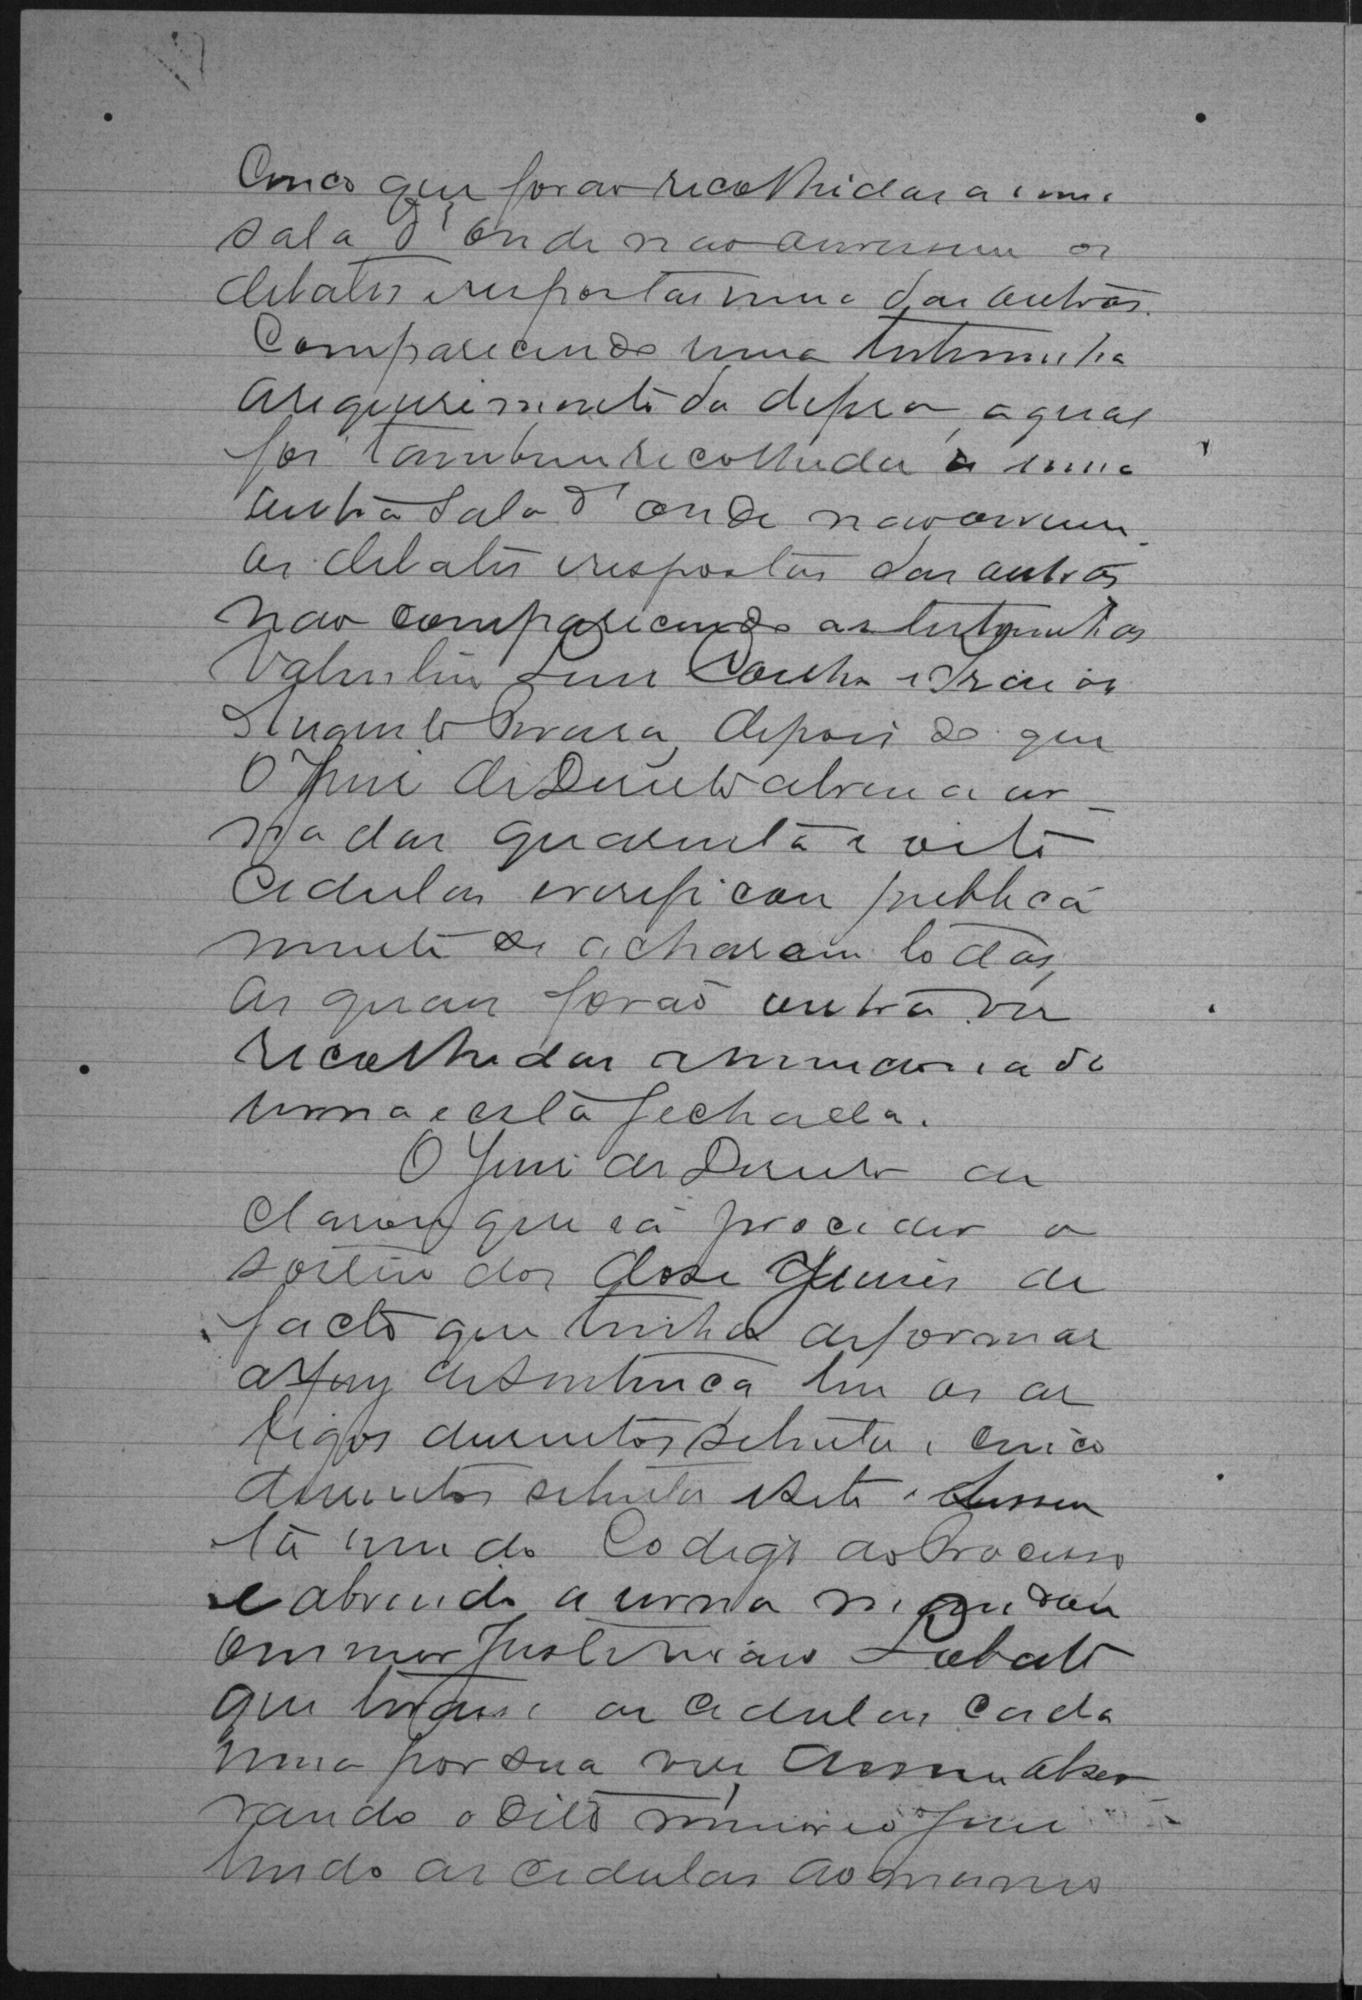 Cinco que forão recolhidas a uma
sala d'onde não ouvissem os
debates e respostas umas das outras.
Comparecendo uma testemunha
a requerimento da defesa, a qual
foi tambem recolhida a uma
outra sala d'onde não ouvem
os debates e respostas das outras
não comparecendo as testemunhas
Valentim Luiz Coelho e
Augusto depois do que
O Juiz de Direito abriu a ur-
na das quarenta e oito
cedulas e verificou publica
mente se acharem todas,
as quaes forão outra vez
recolhidas a mesma
urna e esta fechada.
O Juiz de Direito de
clarou que ia proceder o
sorteio dos dose Juizes de
facto que tinha de formar
o Jury de Sentença leu os ar
tigos duzentos setenta e cinco
duzentos setenta e sete e
ta um do Codigo do Processo
e abrindo a urna mandou
o menor Justiniano Lobato
que tirasse as cedulas cada
uma por sua vez, assim obser
vando o dito menor e o Juiz
lendo as cedulas ao mesmo